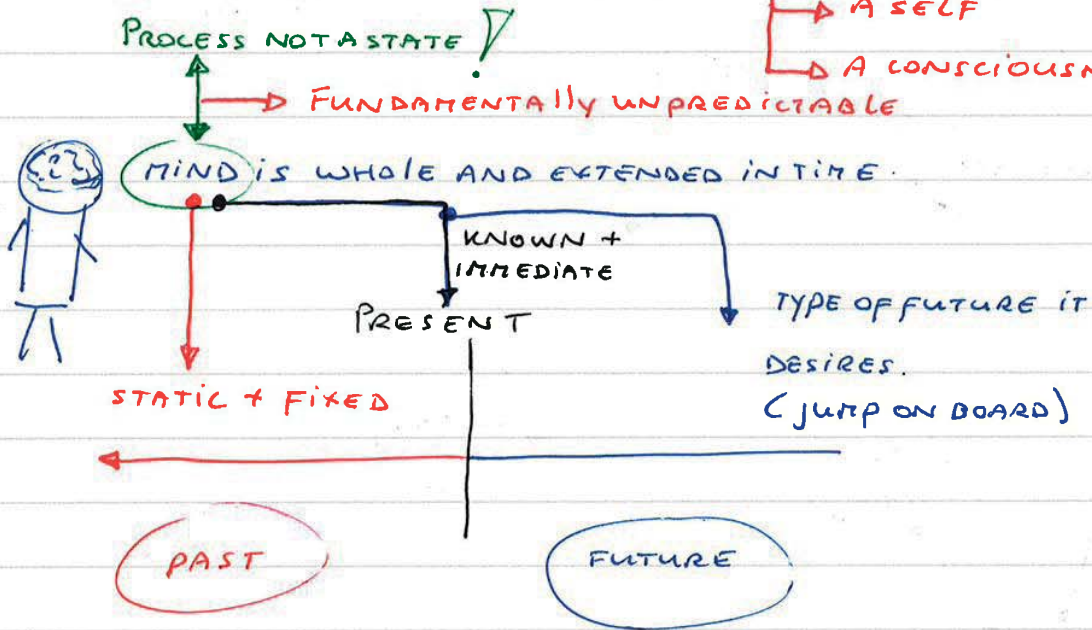 A SELF
PROCESS NOT A STATE !
A CONSCIOUSN
FUNDAMENTAlly UNPREDICTABLE
MIND iS WHOLE AND EXTENDED iN TIME.
KNOWN +
IMMEDIATE
PRESENT
TYPE OF FUTURE IT
DESIRES.
(JUMP ON BOARD)
STATIC + FIXED
PAST
FUTURE